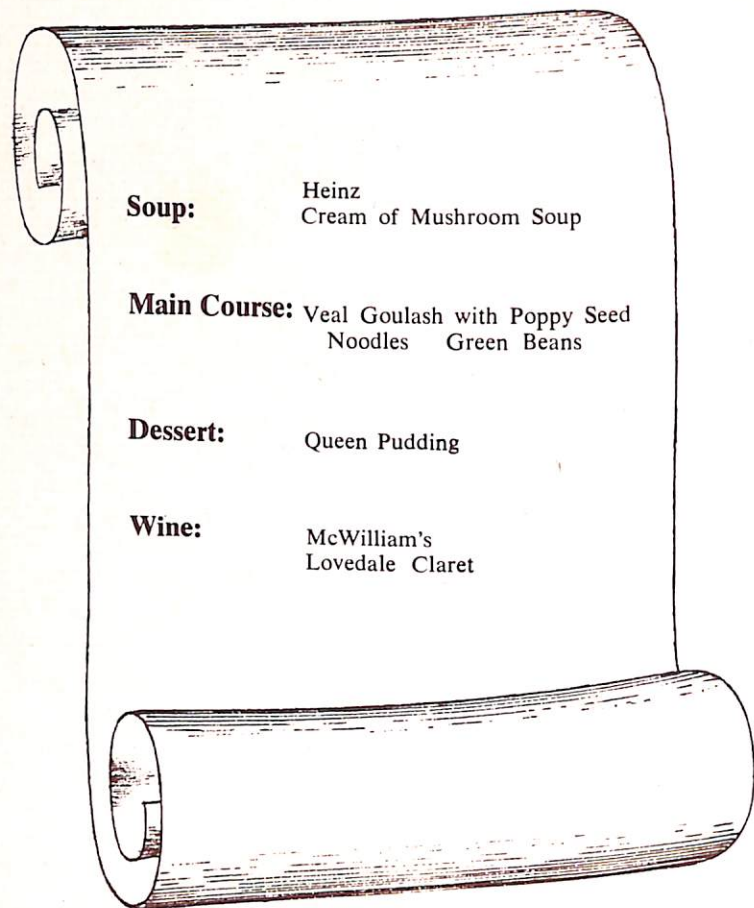 Soup: Heinz
Cream of Mushroom Soup
Main Course: Veal Goulash with Poppy Seed
Noodles Green Beans
Dessert: Queen Pudding
Wine: McWilliam's
Lovedale Claret